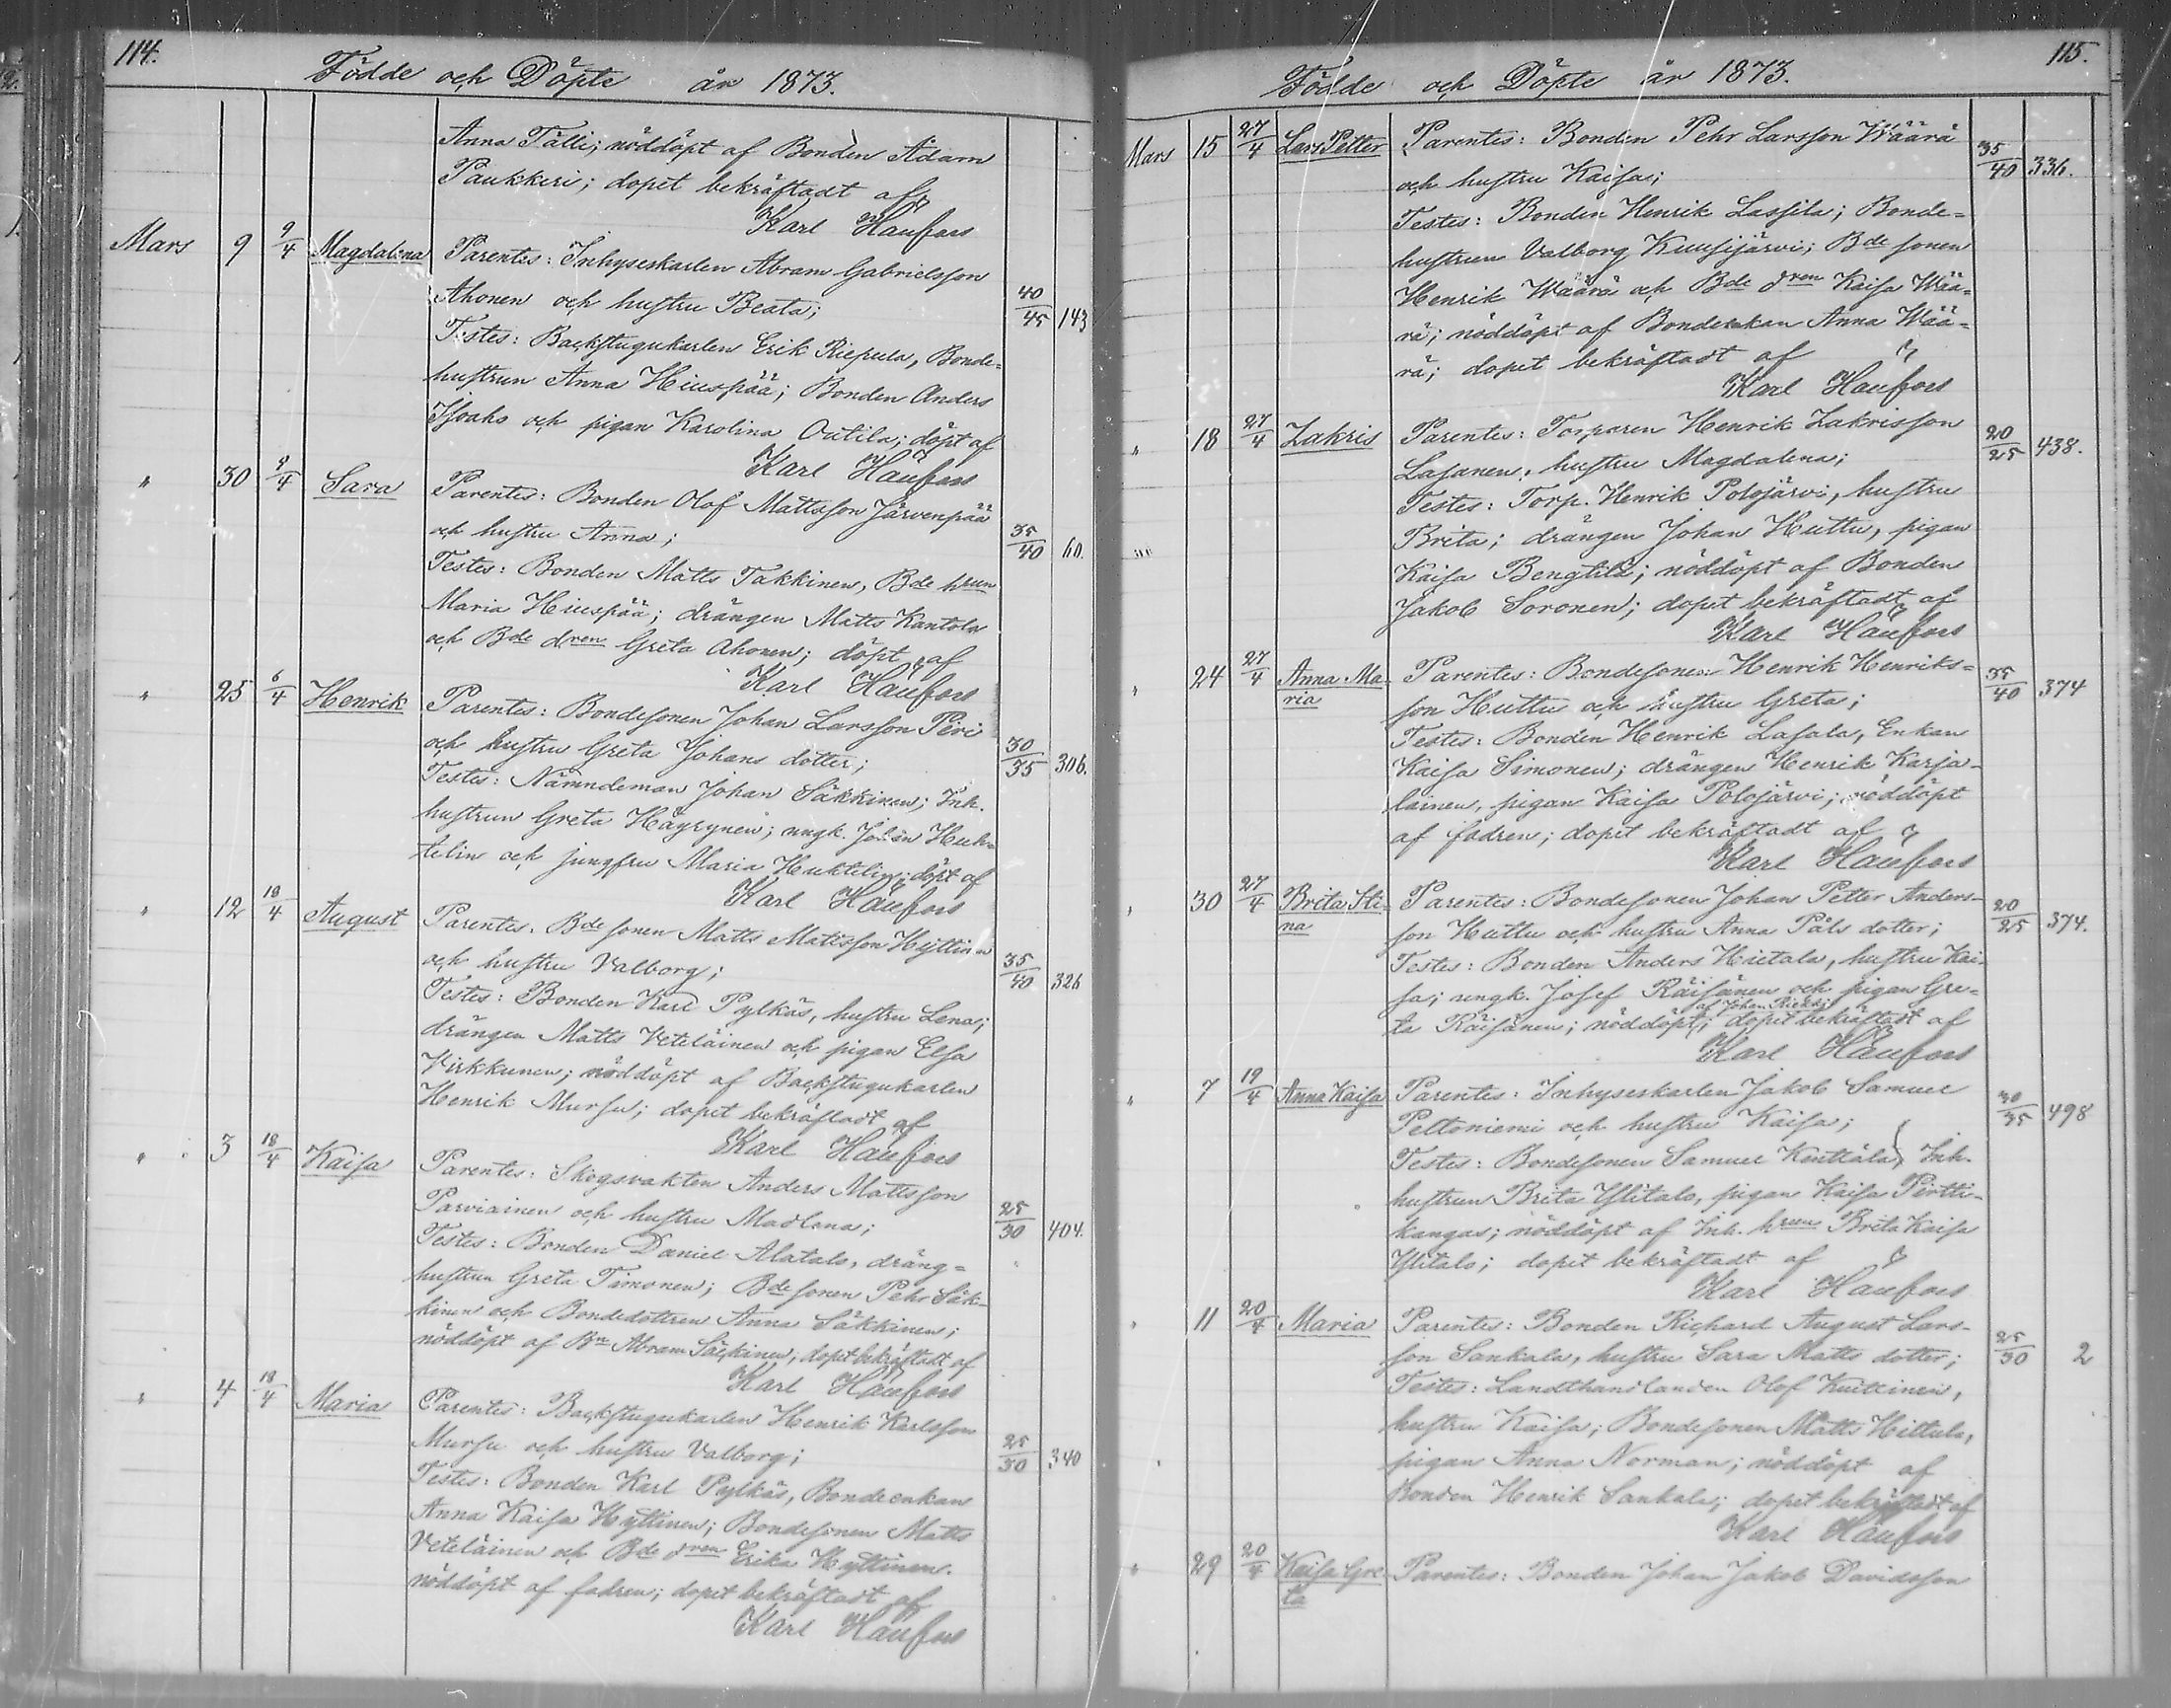 114.
Födde och Döpte år 1873.
Anna Tälli; nöddöpt af Bonden Adam
Paukkeri; dopet bekräftadt af
Karl Häufors
Mars 9 9/4 Magdalena Parentes: Inhyseskarlen Abram Gabrielsson
Ahonen och hustru Beata; 40/45 143
Testes: Backstugukarlen Erik Riepula, Bonde-
hustrun Anna Hiuspää; Bonden Anders
Isoaho och pigan Karolina Outila; döpt af
Karl Häufors
" 30 9/4 Sara Parentes: Bonden Olof Mattsson Järvenpää
och hustru Anna; 35/40 60.
Testes: Bonden Matts Takkinen, Bde hrun
Maria Hiuspää; drängen Matts Kantola
och Bde dren Greta Ahonen; döpt af
Karl Häufors
" 25 6/4 Henrik Parentes: Bondesonen Johan Larsson Piri
och hustru Greta Johans dotter; 30/35 306.
Testes: Nämndeman Johan Säkkinen; Inh.
hustrun Greta Häyrynen; ungk. Johan Huh-
telin och jungfru Maria Huhtelin; döpt af
Karl Häufors
" 12 18/4 August Parentes: Bde sonen Matts Matisson Hyttinen
och hustru Valborg; 35/40 326
Testes: Bonden Karl Pylkäs, hustru Lena;
drängen Matts Veteläinen och pigan Elsa
Virkkunen; nöddöpt af Backstugukarlen
Henrik Mursu; dopet bekräftadt af
Karl Häufors
" 3 18/4 Kaisa Parentes: Skogsvakten Anders Mattsson
Parviainen och hustru Madlena; 25/30 404.
Testes: Bonden Daniel Alatalo, dräng-
hustrun Greta Timonen; Bde sonen Pehr Säk-
kinen och Bondedottren Anna Säkkinen;
nöddöpt af Bn Abram Säkkinen; dopet bekräftadt af
Karl Häufors
" 4 18/4 Maria Parentes: Backstugukarlen Henrik Karlsson
Mursu och hustru Valborg; 25/30 340
Testes: Bonden Karl Pylkäs, Bondeenkan
Anna Kaisa Hyttinen; Bondesonen Matts
Veteläinen och Bde dren Erika Hyttinen.
nöddöpt af fadren; dopet bekräftadt af
Karl Häufors
115.
Födde och Döpte år 1873.
Mars 15 27/4 Lars Petter Parentes: Bonden Pehr Larsson Wäärä
och hustru Kaisa; 35/40 336.
Testes: Bonden Henrik Lassila; Bonde-
hustrun Valborg Kuusijärvi; Bde sonen
Henrik Wäärä och Bde dren Kaisa Wää-
rä; nöddöpt af Bondeenkan Anna Wää-
rä; dopet bekräftadt af
Karl Häufors
" 18 27/4 Zakris Parentes: Torparen Henrik Zakrisson
Lasanen, hustru Magdalena; 20/25 438.
Testes: Torp. Henrik Polojärvi, hustru
Brita; drängen Johan Huttu, pigan
Kaisa Bengtila; nöddöpt af Bonden
Jakob Soronen; dopet bekräftadt af
Karl Häufors
" 24 27/4 Anna Ma- Parentes: Bondesonen Henrik Henriks-
ria son Huttu och hustru Greta; 35/40 374
Testes: Bonden Henrik Lasala, Enkan
Kaisa Simonen; drängen Henrik Karja-
lainen, pigan Kaisa Polojärvi; nöddöpt
af fadren; dopet bekräftadt af
Karl Häufors
" 30 27/4 Brita Sti- Parentes: Bondesonen Johan Petter Anders-
na son Huttu och hustru Anna Påls dotter; 20/25 374.
Testes: Bonden Anders Hietala, hustru Kai-
sa; ungk. Josef Räisänen och pigan Gre-
af Johan Riekki
ta Räisänen; nöddöpt; dopet bekräftadt af
Karl Häufors
" 7 19/4 Anna Kaisa Parentes: Inhyseskarlen Jakob Samuel
Peltoniemi och hustru Kaisa; 30/35 498
Testes: Bondesonen Samuel Kenttälä, Inh.
hustrun Brita Ylitalo, pigan Kaisa Pirtti-
kangas; nöddöpt af Inh. hrun Brita Kaisa
Ylitalo; dopet bekräftadt af
Karl Häufors
" 11 20/4 Maria Parentes: Bonden Richard August Lars-
son Sankala, hustru Sara Matts dotter; 25/30 2
Testes: Landthandlanden Olof Kuttinen,
hustru Kaisa; Bondesonen Matts Hittula,
pigan Anna Norman; nöddöpt af
Bonden Henrik Sankala; dopet bekräftadt af
Karl Häufors
" 29 20/4 Kaisa Gre- Parentes: Bonden Johan Jakob Davidsson
ta